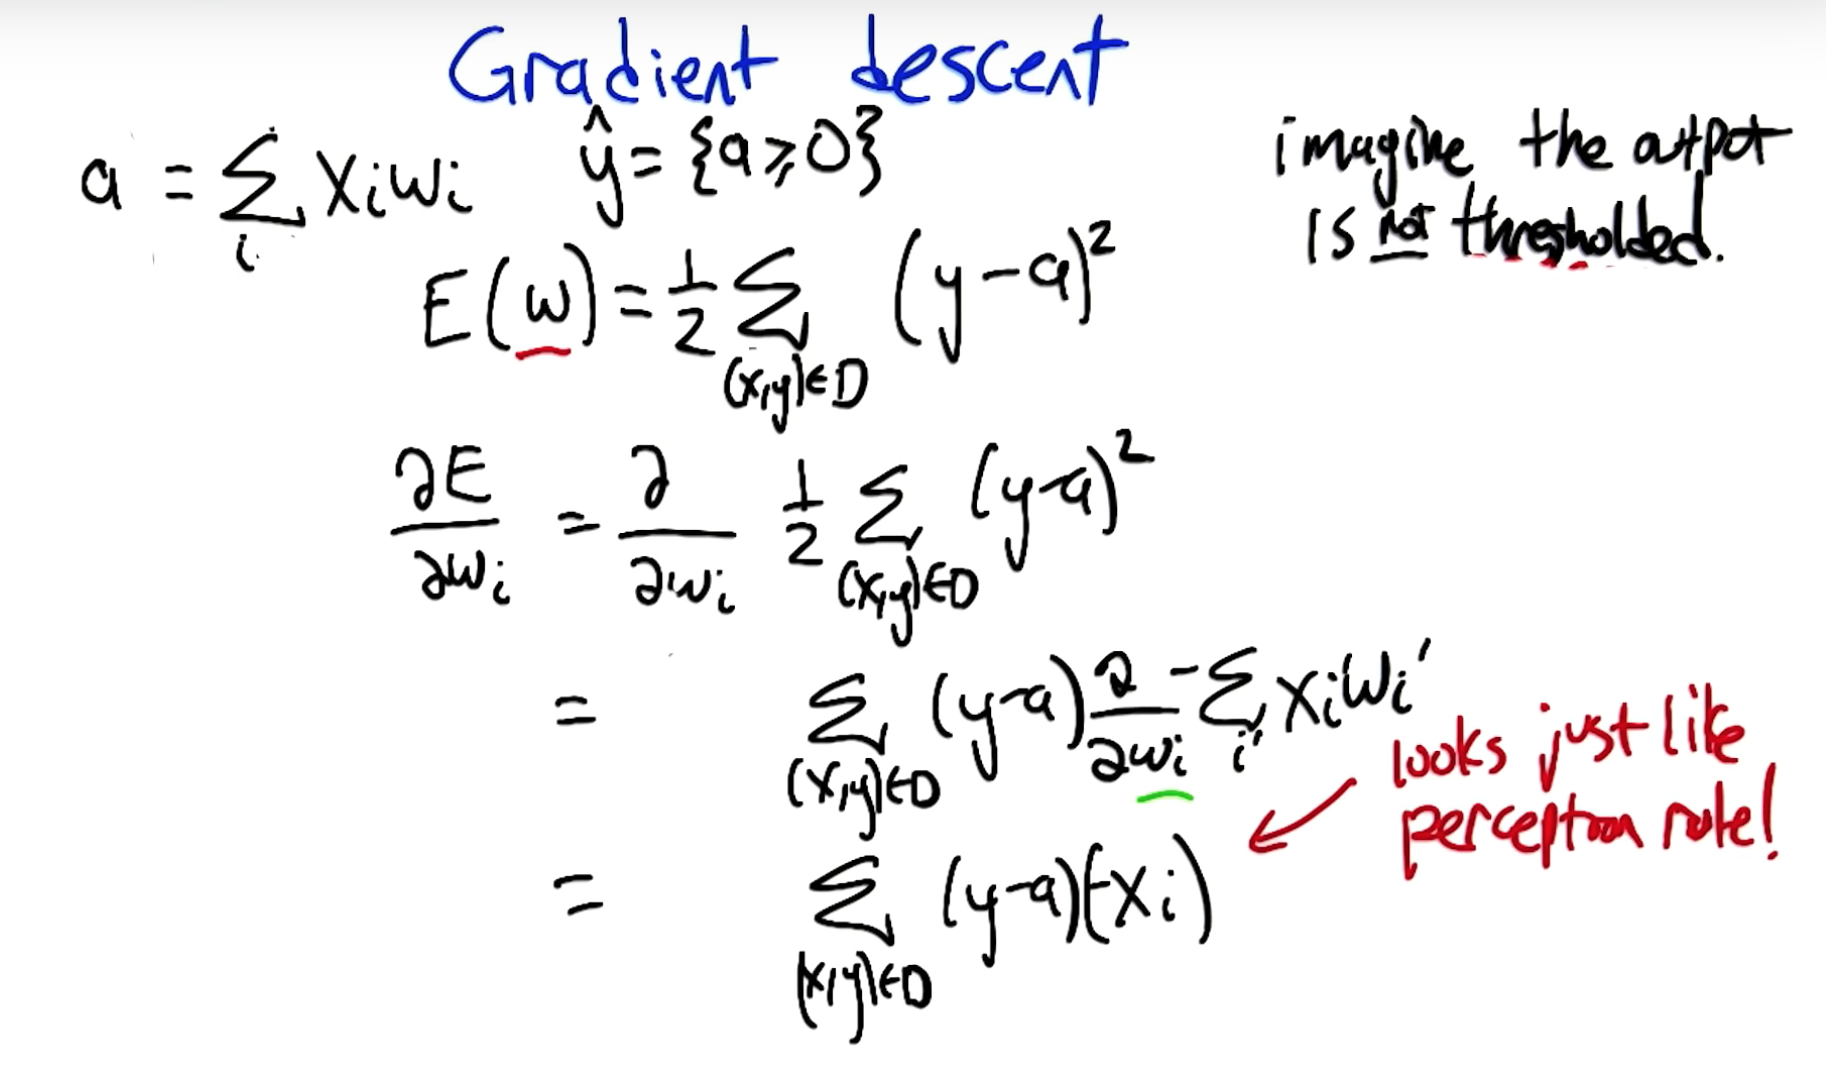 Gradient descent
a = ∑ᵢ xᵢwᵢ   ŷ = {a ⩾ 0}
imagine the output
is not thresholded.
E(w) = ½ ∑_(x,y)∈D (y-a)²
∂E/∂wᵢ = ∂/∂wᵢ ½ ∑_(x,y)∈D (y-a)²
= ∑_(x,y)∈D (y-a) ∂/∂wᵢ -∑ᵢ′ xᵢwᵢ′
looks just like
perceptron rule!
= ∑_(x,y)∈D (y-a)(-xᵢ)